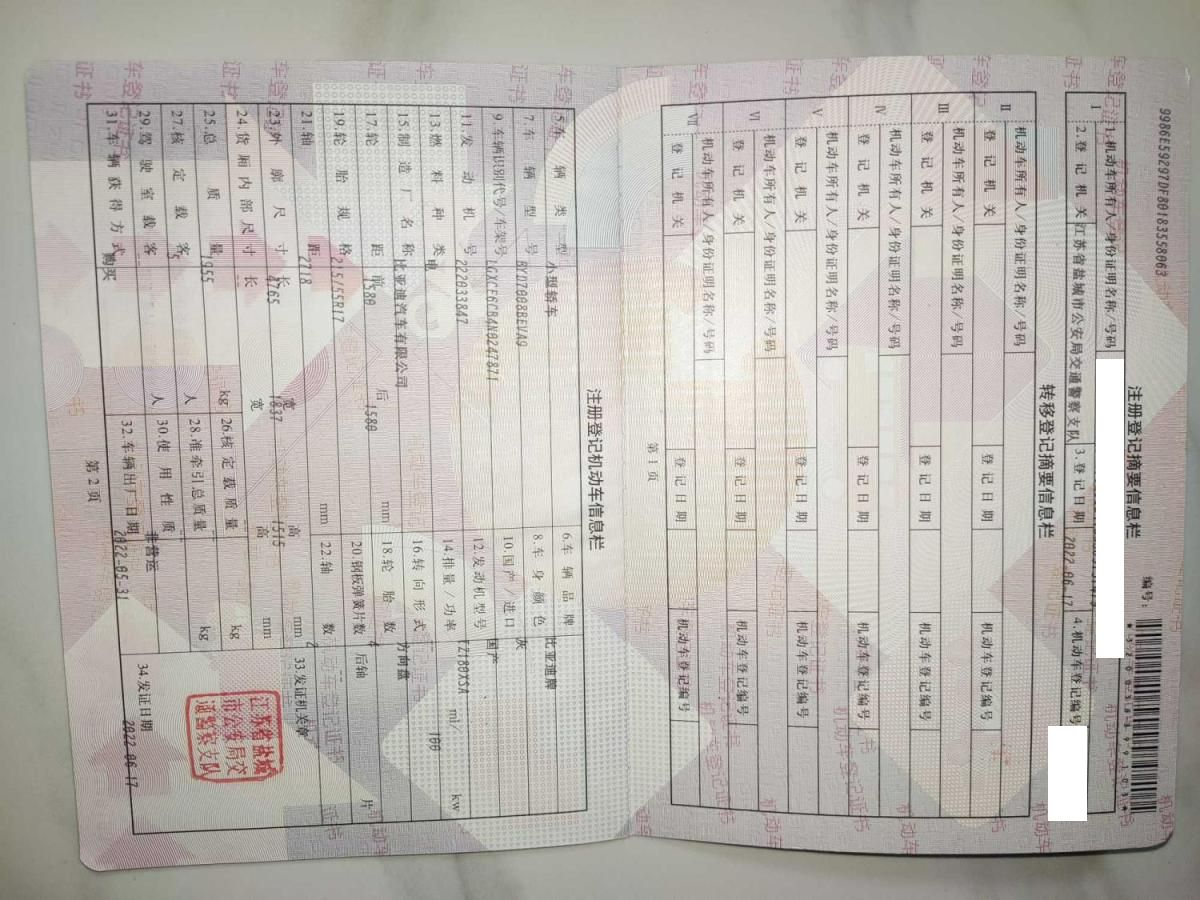 9986E59297DF80183558063
注册登记摘要信息栏
编号：
Ⅰ 1.机动车所有人/身份证明名称/号码
2.登记机关 江苏省盐城市公安局交通警察支队 3.登记日期 2022-06-17 4.机动车登记编号
转移登记摘要信息栏
Ⅱ 机动车所有人/身份证明名称/号码
登记机关 登记日期 机动车登记编号
Ⅲ 机动车所有人/身份证明名称/号码
登记机关 登记日期 机动车登记编号
Ⅳ 机动车所有人/身份证明名称/号码
登记机关 登记日期 机动车登记编号
Ⅴ 机动车所有人/身份证明名称/号码
登记机关 登记日期 机动车登记编号
Ⅵ 机动车所有人/身份证明名称/号码
登记机关 登记日期 机动车登记编号
Ⅶ 机动车所有人/身份证明名称/号码
登记机关 登记日期 机动车登记编号
第1页
注册登记机动车信息栏
5.车辆类型 小型轿车 6.车辆品牌 比亚迪牌
7.车辆型号 BYD7008BEVA9 8.车身颜色 灰
9.车辆识别代号/车架号 LGXCE6CB4N0247871 10.国产/进口 国产
11.发动机号 222033847 12.发动机型号 TZ180XSA
13.燃料种类 电 14.排量/功率 ml/ 100 kw
15.制造厂名称 比亚迪汽车有限公司 16.转向形式 方向盘
17.轮距 前 1580 后 1580 mm 18.轮胎数 4
19.轮胎规格 215/55R17 20.钢板弹簧片数 后轴 -- 片
21.轴距 2718 mm 22.轴数 2
23.外廓尺寸 长 4765 宽 1837 高 1515 mm 33.发证机关章
24.货厢内部尺寸 长 宽 高 mm
25.总质量 1955 kg 26.核定载质量 -- kg
27.核定载客 5 人 28.准牵引总质量 -- kg
29.驾驶室载客 人 30.使用性质 非营运
31.车辆获得方式 购买 32.车辆出厂日期 2022-05-31 34.发证日期 2022-06-17
江苏省盐城
市公安局交
通警察支队
第2页